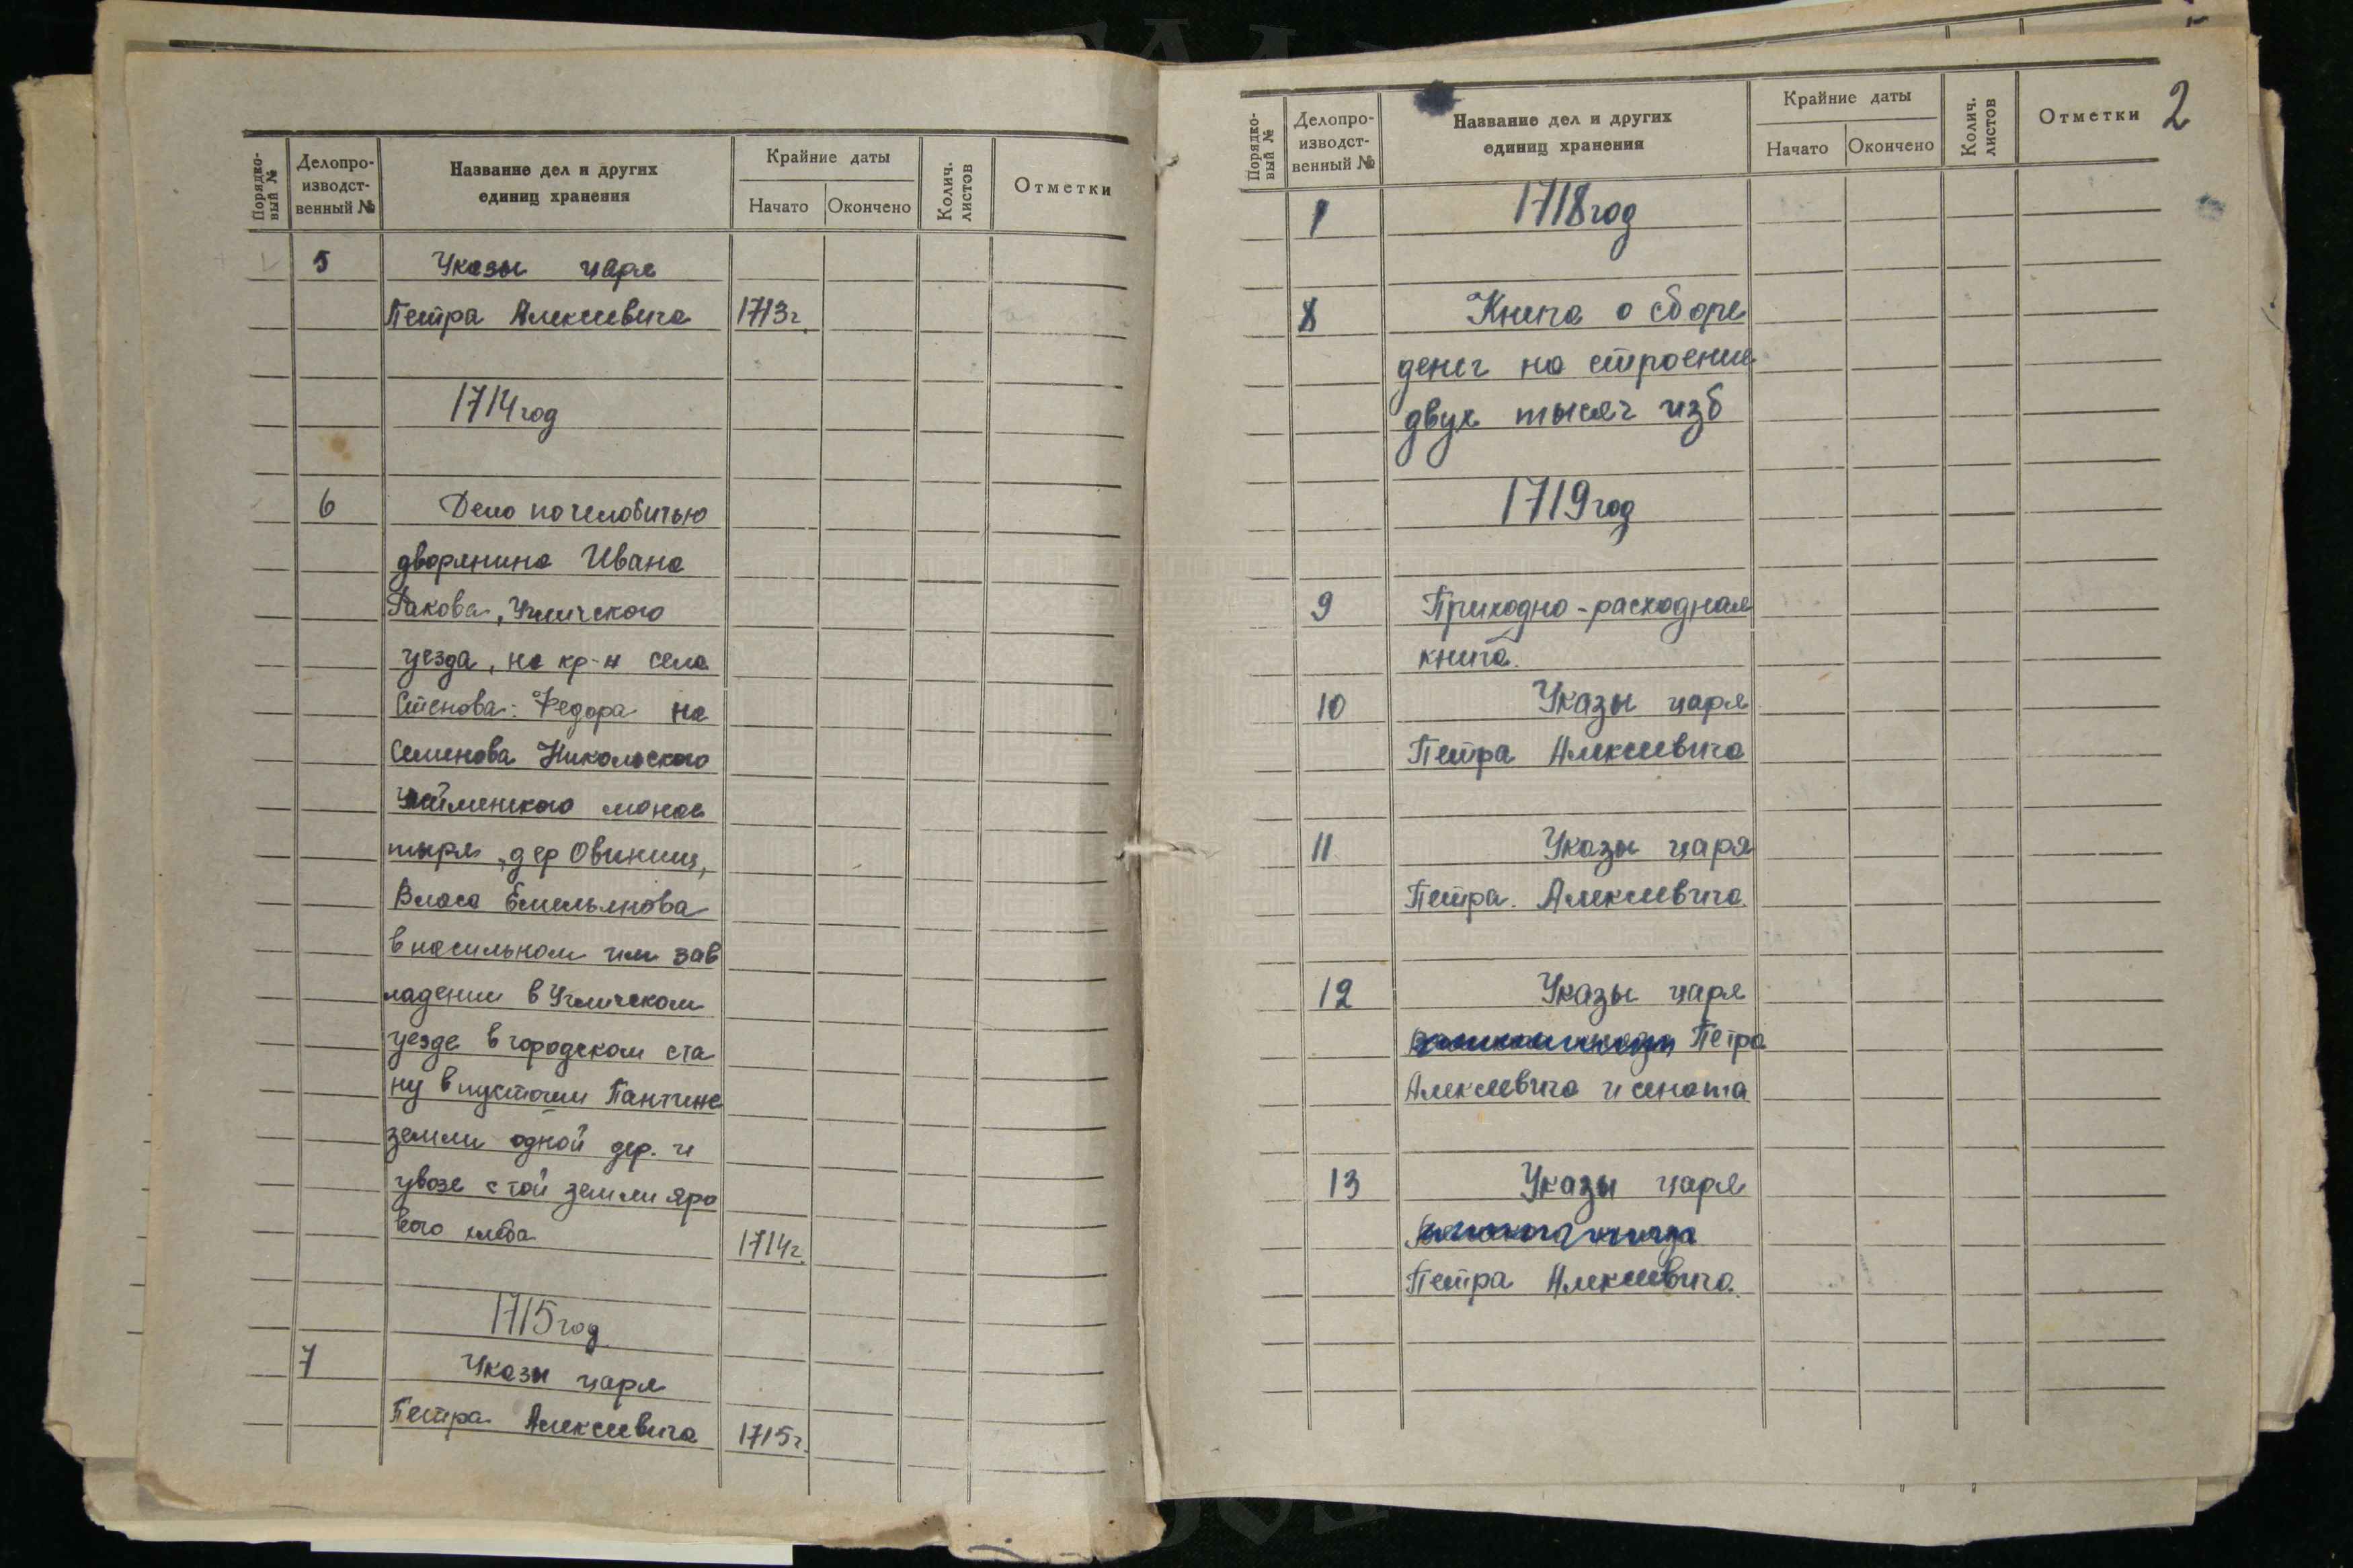 Порядко-
вый №
Делопро-
изводст-
венный №
Название дел и других
единиц хранения
Крайние даты
Начато
Окончено
Колич.
листов
Отметки
5 Указы царя
Петра Алексеевича 1713г.
1714 год
6 Дело по челобитью
дворянина Ивана
Ракова, Угличского
уезда, на кр-н села
Стенова: Федора на
Семенова Никольского
монас
тыря, дер Овинищ,
Власа Емельянова
в насильном ими зав
ладении в Угличском
уезде в городском ста
ну в пустоши Пантине
земли одной дер. и
увозе с той земли яро
вого хлеба 1714г.
1715 год
7 Указы царя
Петра Алексеевича 1715г.
2
Порядко-
вый №
Делопро-
изводст-
венный №
Название дел и других
единиц хранения
Крайние даты
Начато
Окончено
Колич.
листов
Отметки
1718 год
8 Книга о сборе
денег на строение
двух тысяч изб
1719 год
9 Приходно-расходная
книга.
10 Указы царя
Петра Алексеевича
11 Указы царя
Петра Алексеевича.
12 Указы царя
Петра
Алексеевича и сената
13 Указы царя
Петра Алексеевича.